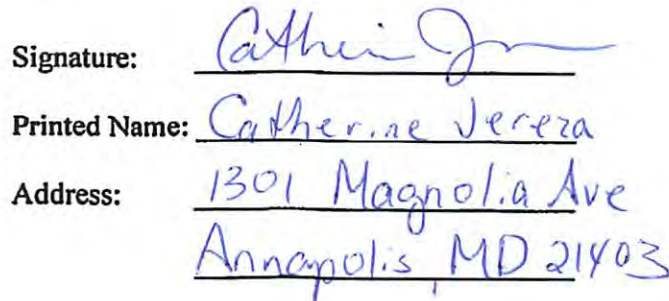 Signature: Catherine J
Printed Name: Catherine Jereza
Address: 1301 Magnolia Ave
Annapolis, MD 21403